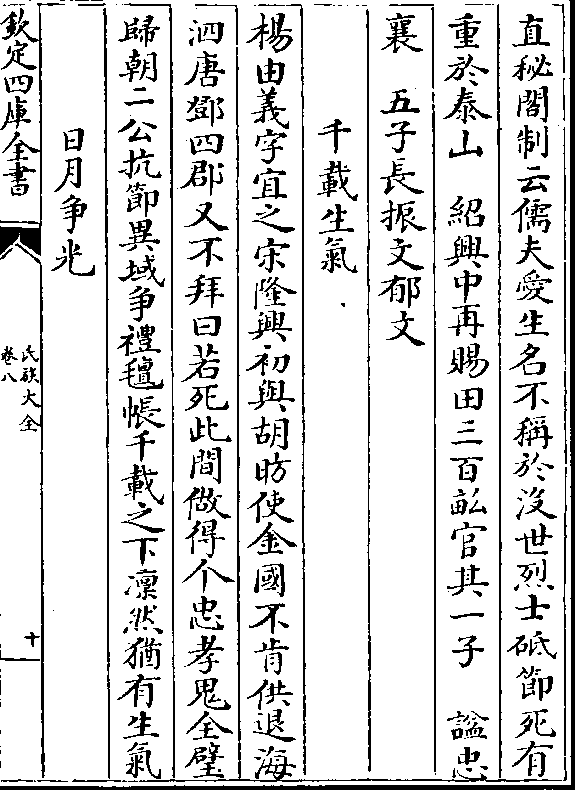 直秘閣制云儒夫愛生名不稱於沒世烈士砥節死有
重於泰山　紹興中再賜田三百畝官其一子　諡忠
襄　五子長振文郁文
千載生氣
楊由義字宜之宋隆興初與胡昉使金國不肯供退海
泗唐鄧四郡又不拜曰若死此間做得个忠孝鬼全璧
歸朝二公抗節異域争禮氊帳千載之下凛然猶有生氣
日月争光
欽定四庫全書
氏族大全
卷八
十